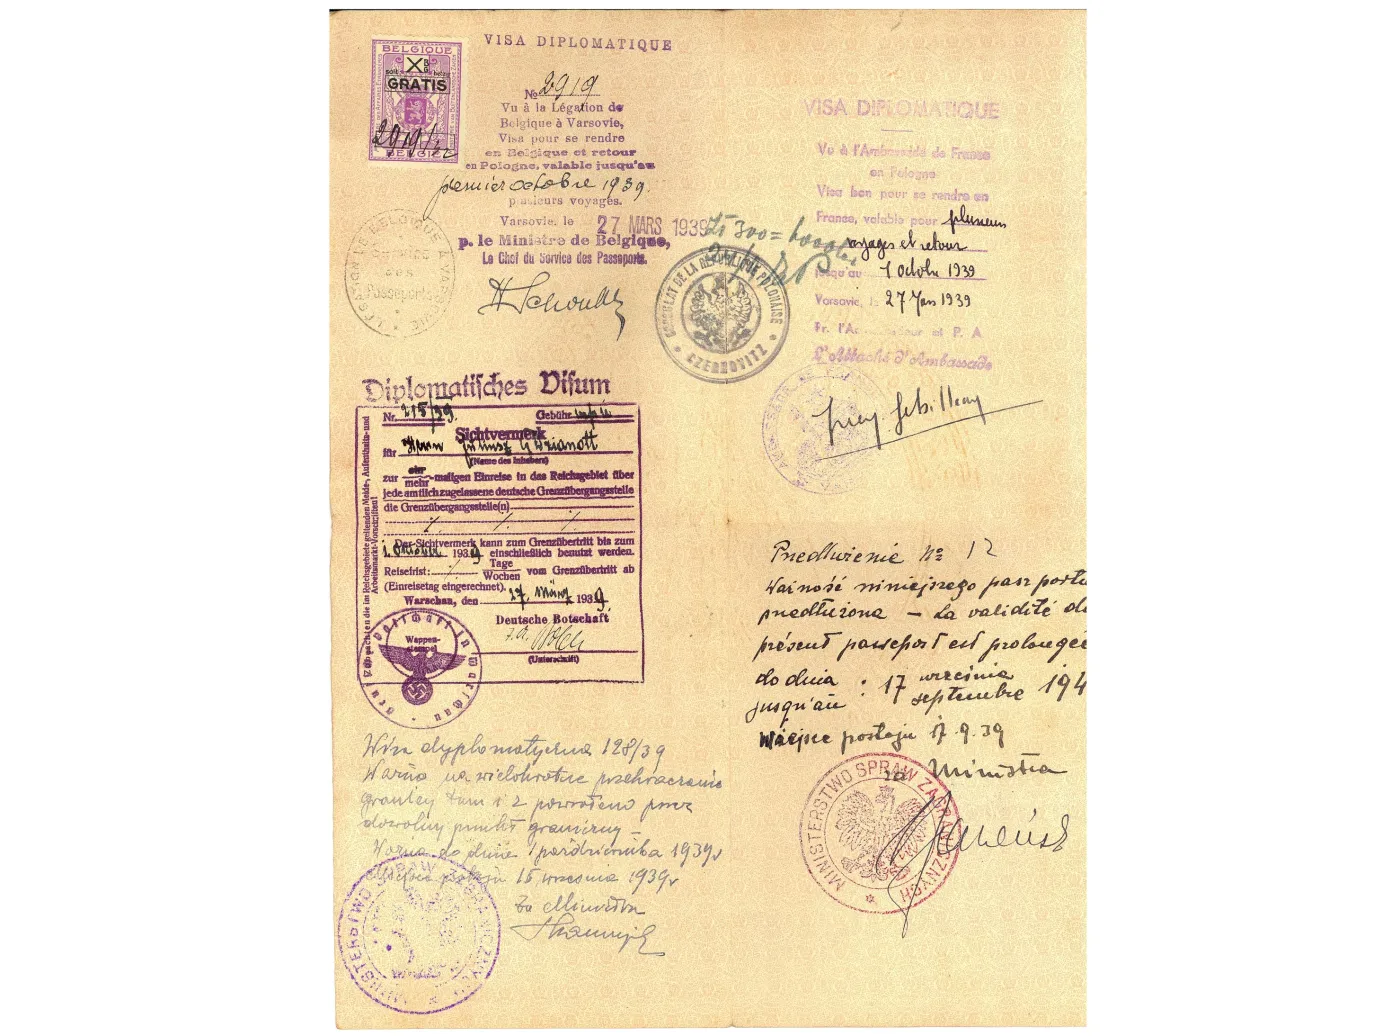 BELGIQUE
GRATIS
2919/32
BELGIË
VISA DIPLOMATIQUE
No 2919
Vu à la Légation de
Belgique à Varsovie,
Visa pour se rendre
en Belgique et retour
en Pologne, valable jusqu'au
premier octobre 1939.
plusieurs voyages.
Varsovie, le 27 MARS 1939
p. le Ministre de Belgique,
Le Chef du Service des Passeports.
LÉGATION DE BELGIQUE À VARSOVIE
Service
des
Passeports
Zł 300 =
CONSULAT DE LA RÉPUBLIQUE POLONAISE
CZERNOVITZ
VISA DIPLOMATIQUE
Vu à l'Ambassade de France
en Pologne
Visa bon pour se rendre en
France, valable pour plusieurs
voyages et retour
jusqu'au 1 octobre 1939
Varsovie, le 27 Mars 1939
Pr. l'Ambassadeur et P. A
L'Attaché d'Ambassade
Diplomatisches Visum
Nr. 215/39. Gebühr
Sichtvermerk
für Herrn Juliusz
(Name des Inhabers)
zur ein
mehr -maligen Einreise in das Reichsgebiet über
jede amtlich zugelassene deutsche Grenzübergangsstelle
die Grenzübergangsstelle(n)
Der Sichtvermerk kann zum Grenzübertritt bis zum
1. Oktober 1939 einschließlich benutzt werden.
Reisefrist: Tage
Wochen vom Grenzübertritt ab
(Einreisetag eingerechnet).
Warschau, den 27. März 1939.
Deutsche Botschaft
(Unterschrift)
Wappen-
stempel
Deutsche Botschaft in Warschau
Zu beachten die im Reichsgebiete geltenden Melde-, Aufenthalts- und
Arbeitsmarkt-Vorschriften!
Przedłużenie No 12
Ważność niniejszego paszportu
przedłużona – La validité du
présent passeport est prolongée
do dnia : 17 września
jusqu'au : septembre 194
Miejsce postoju 17.9.39
za Ministra
MINISTERSTWO SPRAW ZAGRANICZNYCH
Wiza dyplomatyczna 128/39
Ważna na wielokrotne przekraczanie
granicy tam i z powrotem przez
dowolny punkt graniczny –
Ważna do dnia 1 października 1939 r
Miejsce postoju 15 września 1939 r
Za Ministra
MINISTERSTWO SPRAW ZAGRANICZNYCH